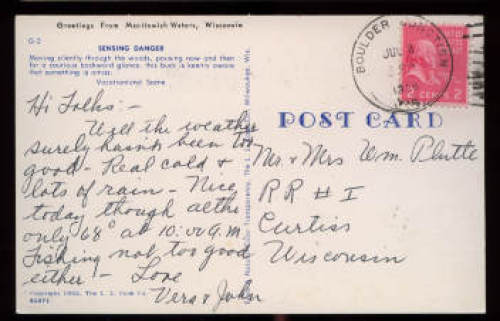 Greetings From Manitowish Waters, Wisconsin
G-2
SENSING DANGER
Moving silently through the woods, pausing now and then
for a courious backward glance, this buck is keenly aware
that something is amiss.
Vacationland Scene
Hi Folks:-
Well the weather
surely hasn't been too
good - Real cold &
lots of rain - Nice
today though altho
only 68° at 10:00 A.M.
Fishing not too good
either! - Love
Vera & John
BOULDER JUNCTION
2 CENTS 2
POST CARD
Mr. & Mrs Wm. Plutte
RR # 1
Curtiss
Wisconsin